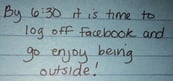 By 6:30 it is time to
log off facebook and
go enjoy being
outside!